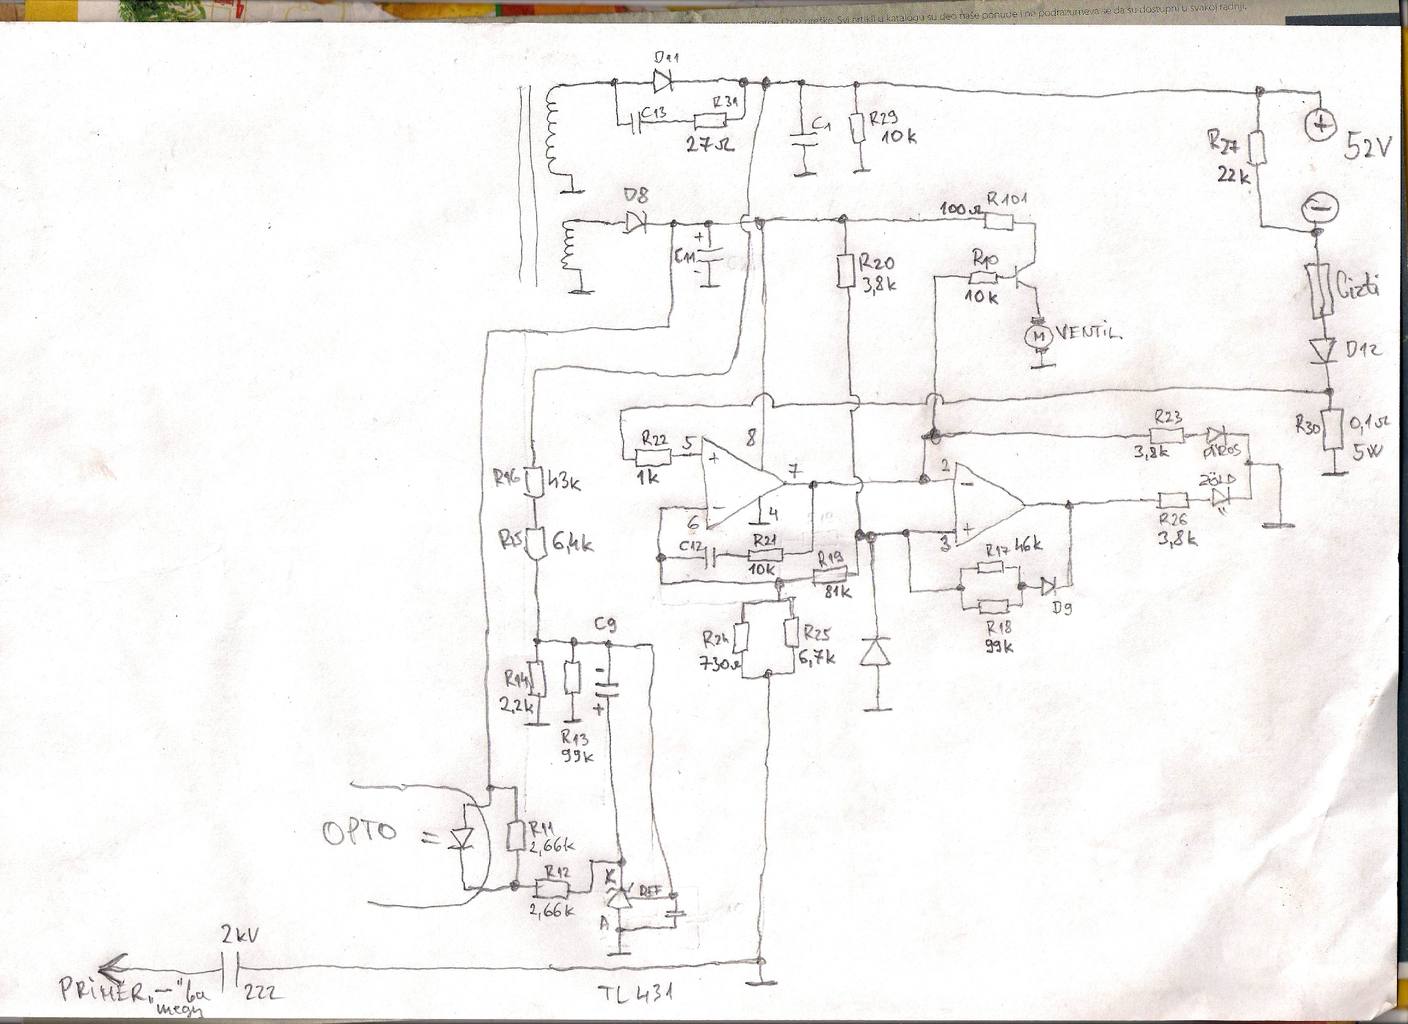 Svi artikli u katalogu su deo naše ponude i ne podrazumeva se da su dostupni u svakoj radnji.
D11
C13
R31
27Ω
C1
R29
10k
R27
22k
+
52V
−
D8
+
C11
-
100Ω
R101
R20
3,8k
R10
10k
M
VENTIL
Cizti
D12
R30
0,1Ω
5W
R22
1k
5
+
8
7
−
6
4
C12
R21
10k
R19
81k
R23
3,8k
PIROS
ZÖLD
R26
3,8k
2
−
+
3
R17
46k
D9
R18
99k
R16
43k
R15
6,4k
R24
730Ω
R25
6,7k
C9
-
+
R14
2,2k
R13
99k
OPTO =
R11
2,66k
R12
2,66k
K
REF
A
TL431
2kV
222
PRIMER "−" ba
megy